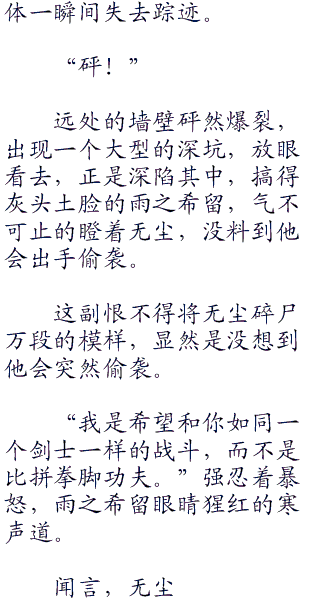 体一瞬间失去踪迹。
“砰！”
远处的墙壁砰然爆裂，
出现一个大型的深坑，放眼
看去，正是深陷其中，搞得
灰头土脸的雨之希留，气不
可止的瞪着无尘，没料到他
会出手偷袭。
这副恨不得将无尘碎尸
万段的模样，显然是没想到
他会突然偷袭。
“我是希望和你如同一
个剑士一样的战斗，而不是
比拼拳脚功夫。”强忍着暴
怒，雨之希留眼睛猩红的寒
声道。
闻言，无尘